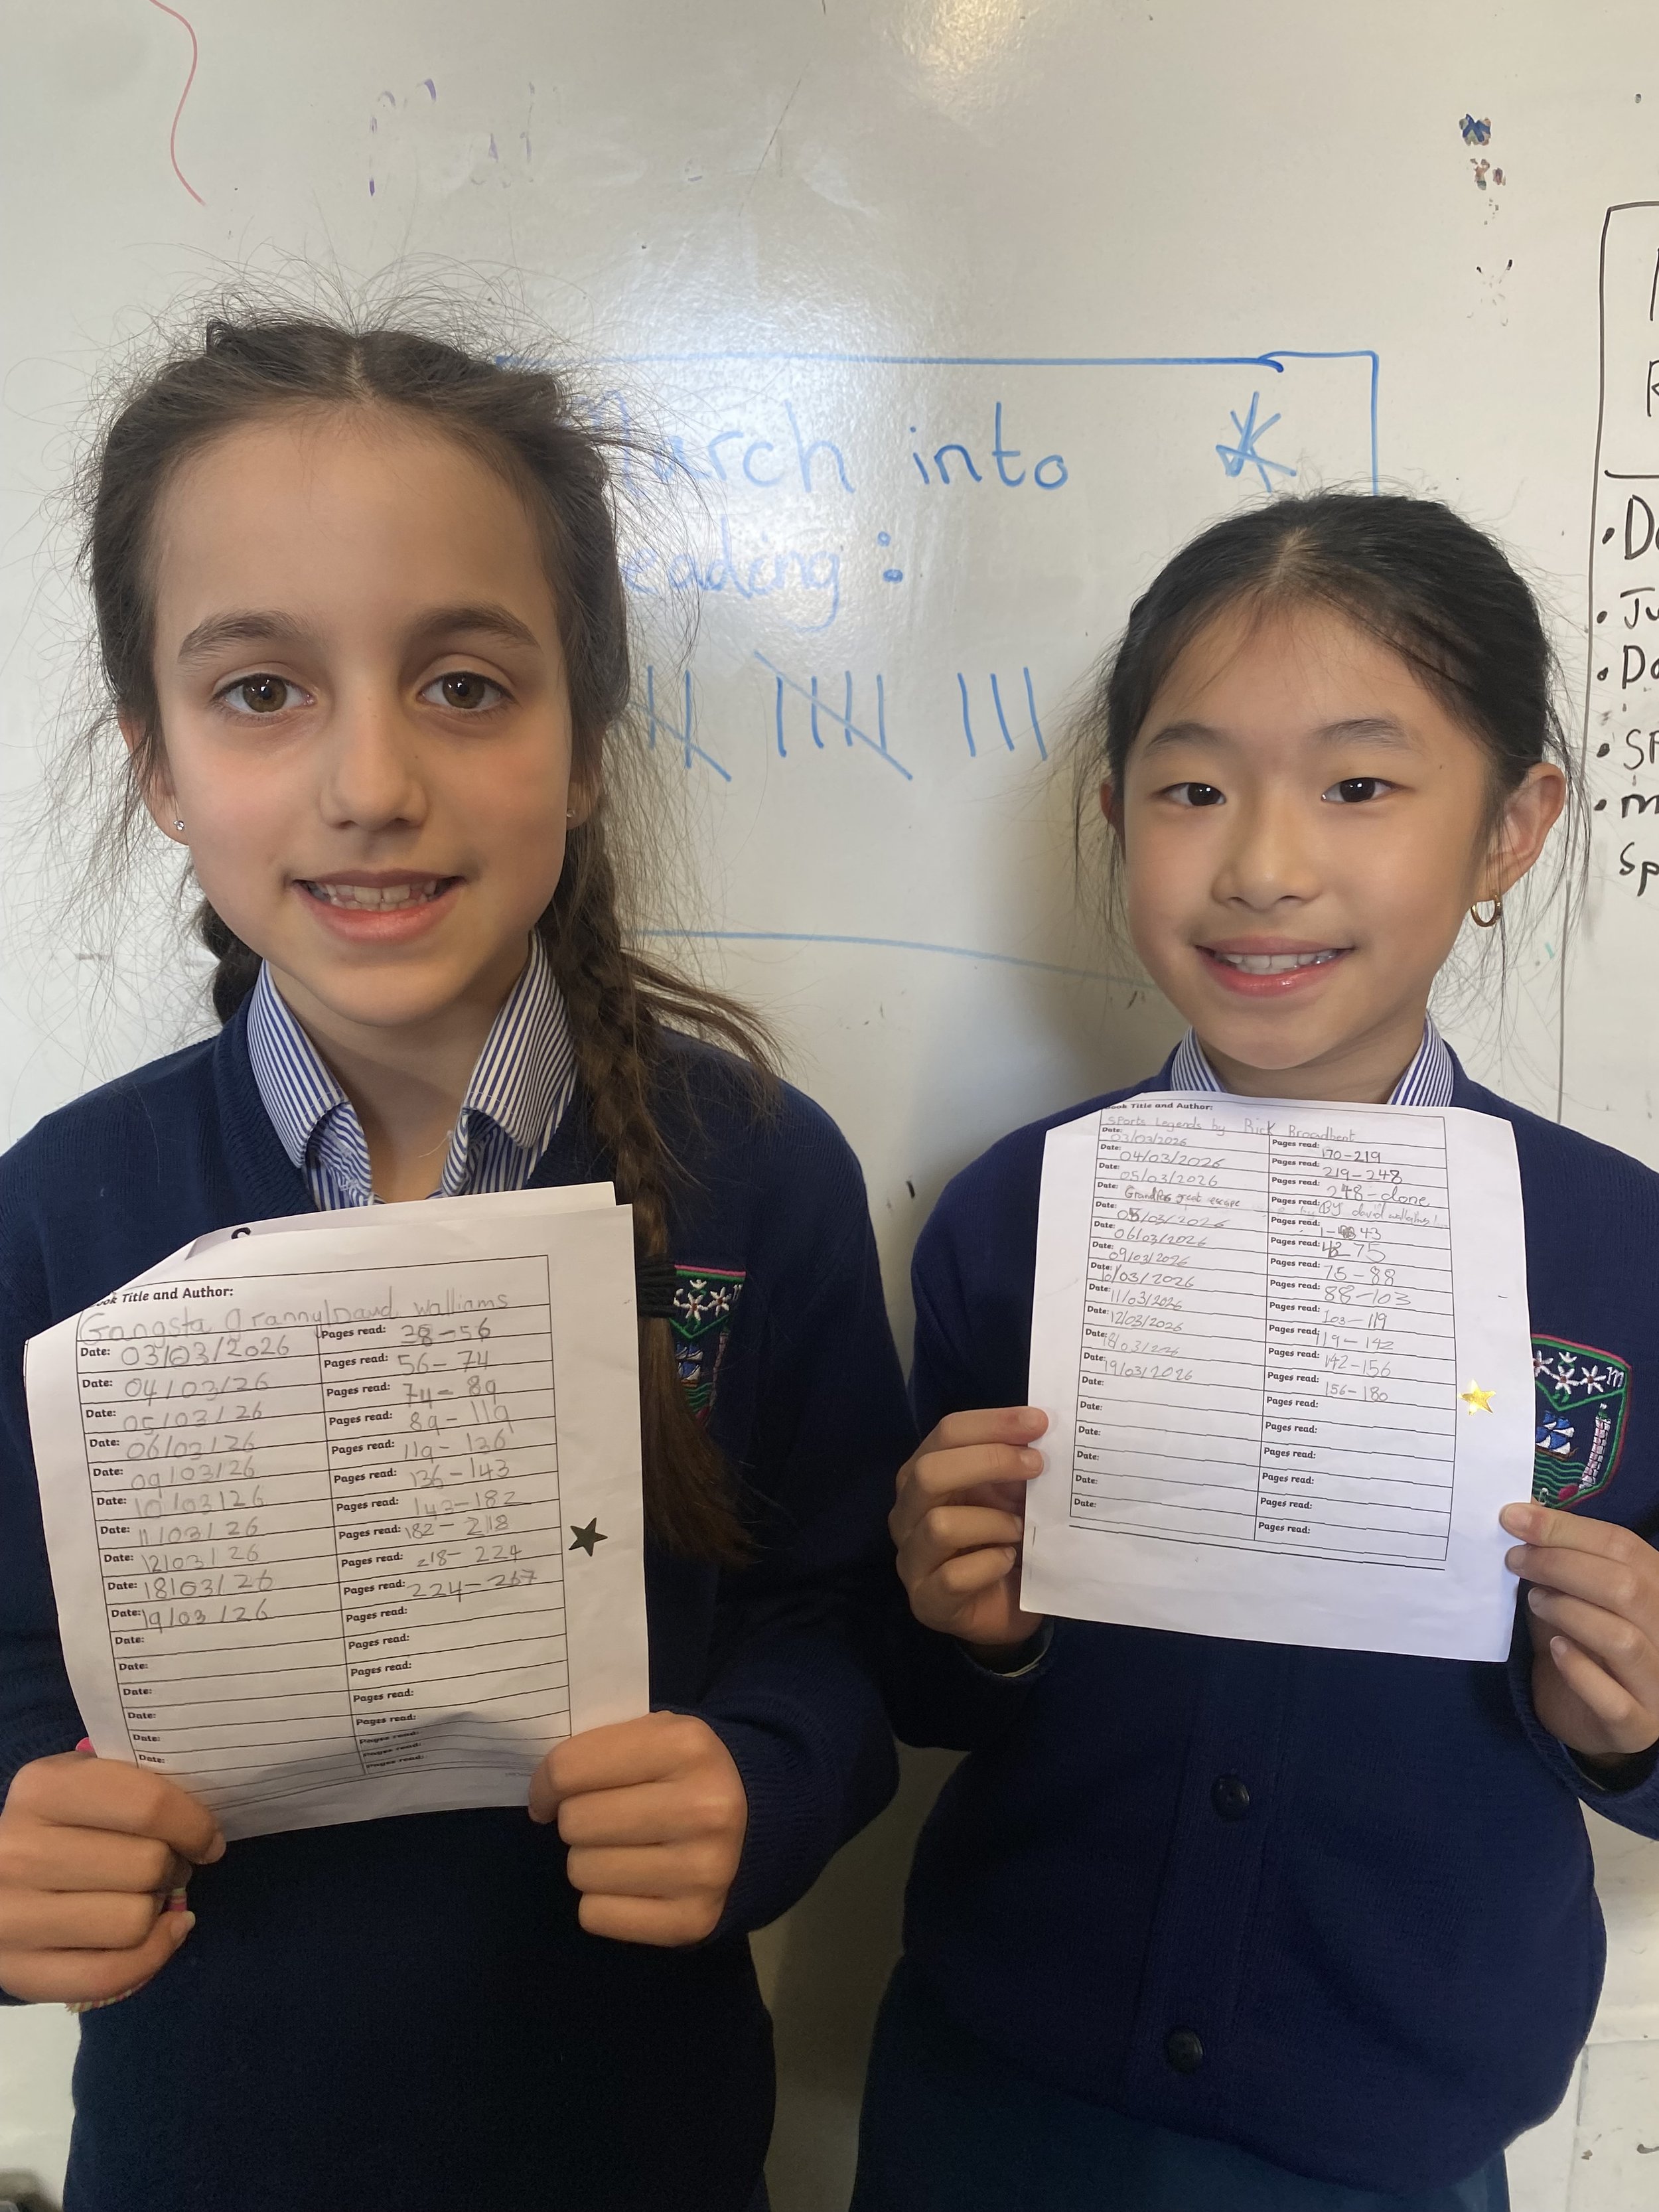 March into
eading :
Book Title and Author:
Gangsta Granny David Walliams
Date: 03/03/2026 Pages read: 38-56
Date: 04/03/26 Pages read: 56-74
Date: 05/03/26 Pages read: 74-89
Date: 06/03/26 Pages read: 89-119
Date: 09/03/26 Pages read: 119-136
Date: 10/03/26 Pages read: 136-143
Date: 11/03/26 Pages read: 143-182
Date: 12/03/26 Pages read: 182-218
Date: 18/03/26 Pages read: 218-224
Date: 19/03/26 Pages read: 224-267
Date: Pages read:
Date: Pages read:
Date: Pages read:
Date: Pages read:
Date: Pages read:
Date: Pages read:
Book Title and Author:
Sports Legends by Rick Broadbent
Date: 03/03/2026 Pages read: 170-219
Date: 04/03/2026 Pages read: 219-248
Date: 05/03/2026 Pages read: 248-done
Date: GrandPas great escape Pages read: BY david walliams!
Date: 05/03/2026 Pages read: 1-43
Date: 06/03/2026 Pages read: 43-75
Date: 09/03/2026 Pages read: 75-88
Date: 10/03/2026 Pages read: 88-103
Date: 11/03/2026 Pages read: 103-119
Date: 12/03/2026 Pages read: 119-142
Date: 18/03/2026 Pages read: 142-156
Date: 19/03/2026 Pages read: 156-180
Date: Pages read:
Date: Pages read:
Date: Pages read:
Date: Pages read:
Date: Pages read:
Date: Pages read:
m